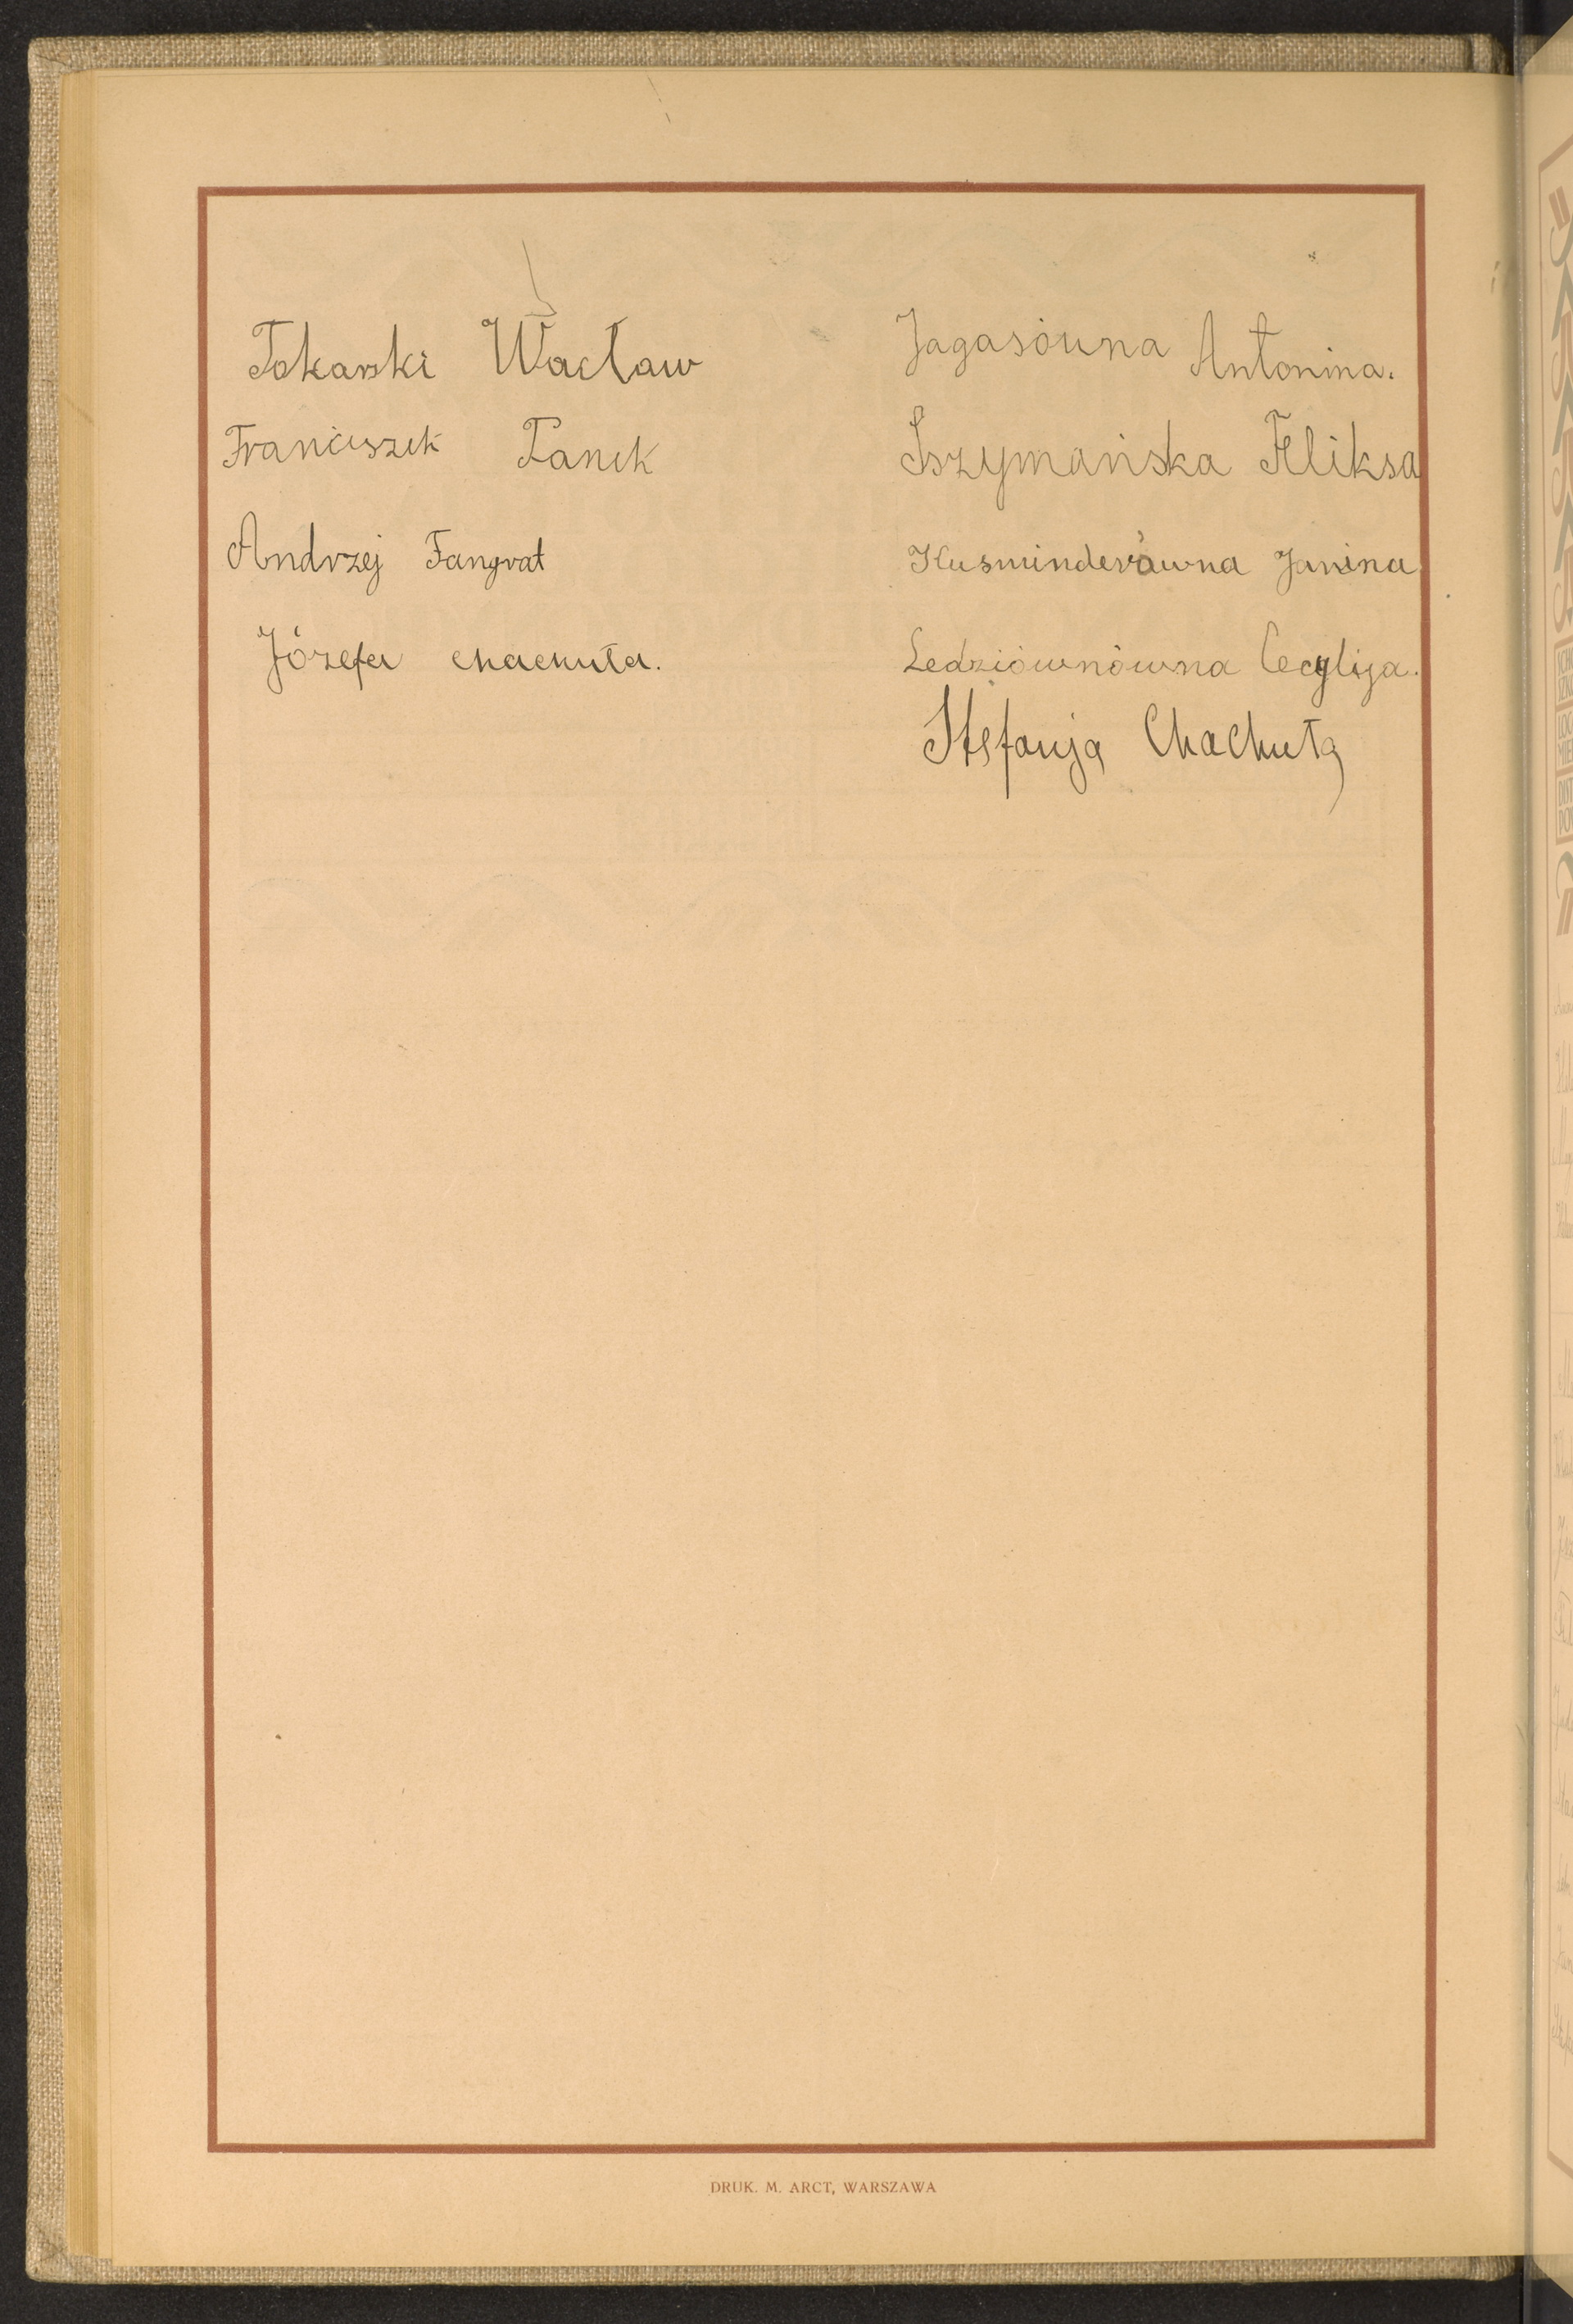 Tokarski Wacław
Franciszek Panek
Andrzej Fangrat
Józefa chachuła.
Jagasówna Antonina.
Szymańska Feliksa
Kusminderówna Janina
Ledziównówna Cecylija.
Stefanja Chachuła
DRUK. M. ARCT, WARSZAWA